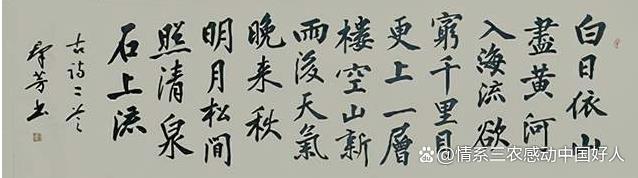 白日依山
盡黄河
入海流欲
窮千里目
更上一層
樓空山新
雨後天氣
晚来秋
明月松間
照清泉
石上流
古诗二首
芳书
情系三农感动中国好人